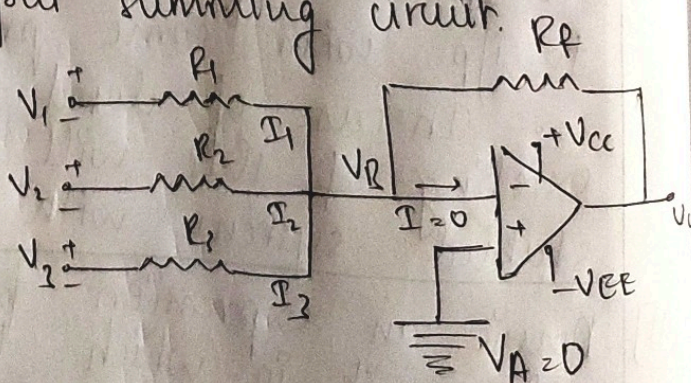 summing circuit.
Rf
+
V1
-
R1
I1
+
V2
-
R2
I2
+
V3
-
R3
I3
VB
I=0
+VCC
-
+
-VEE
VA=0